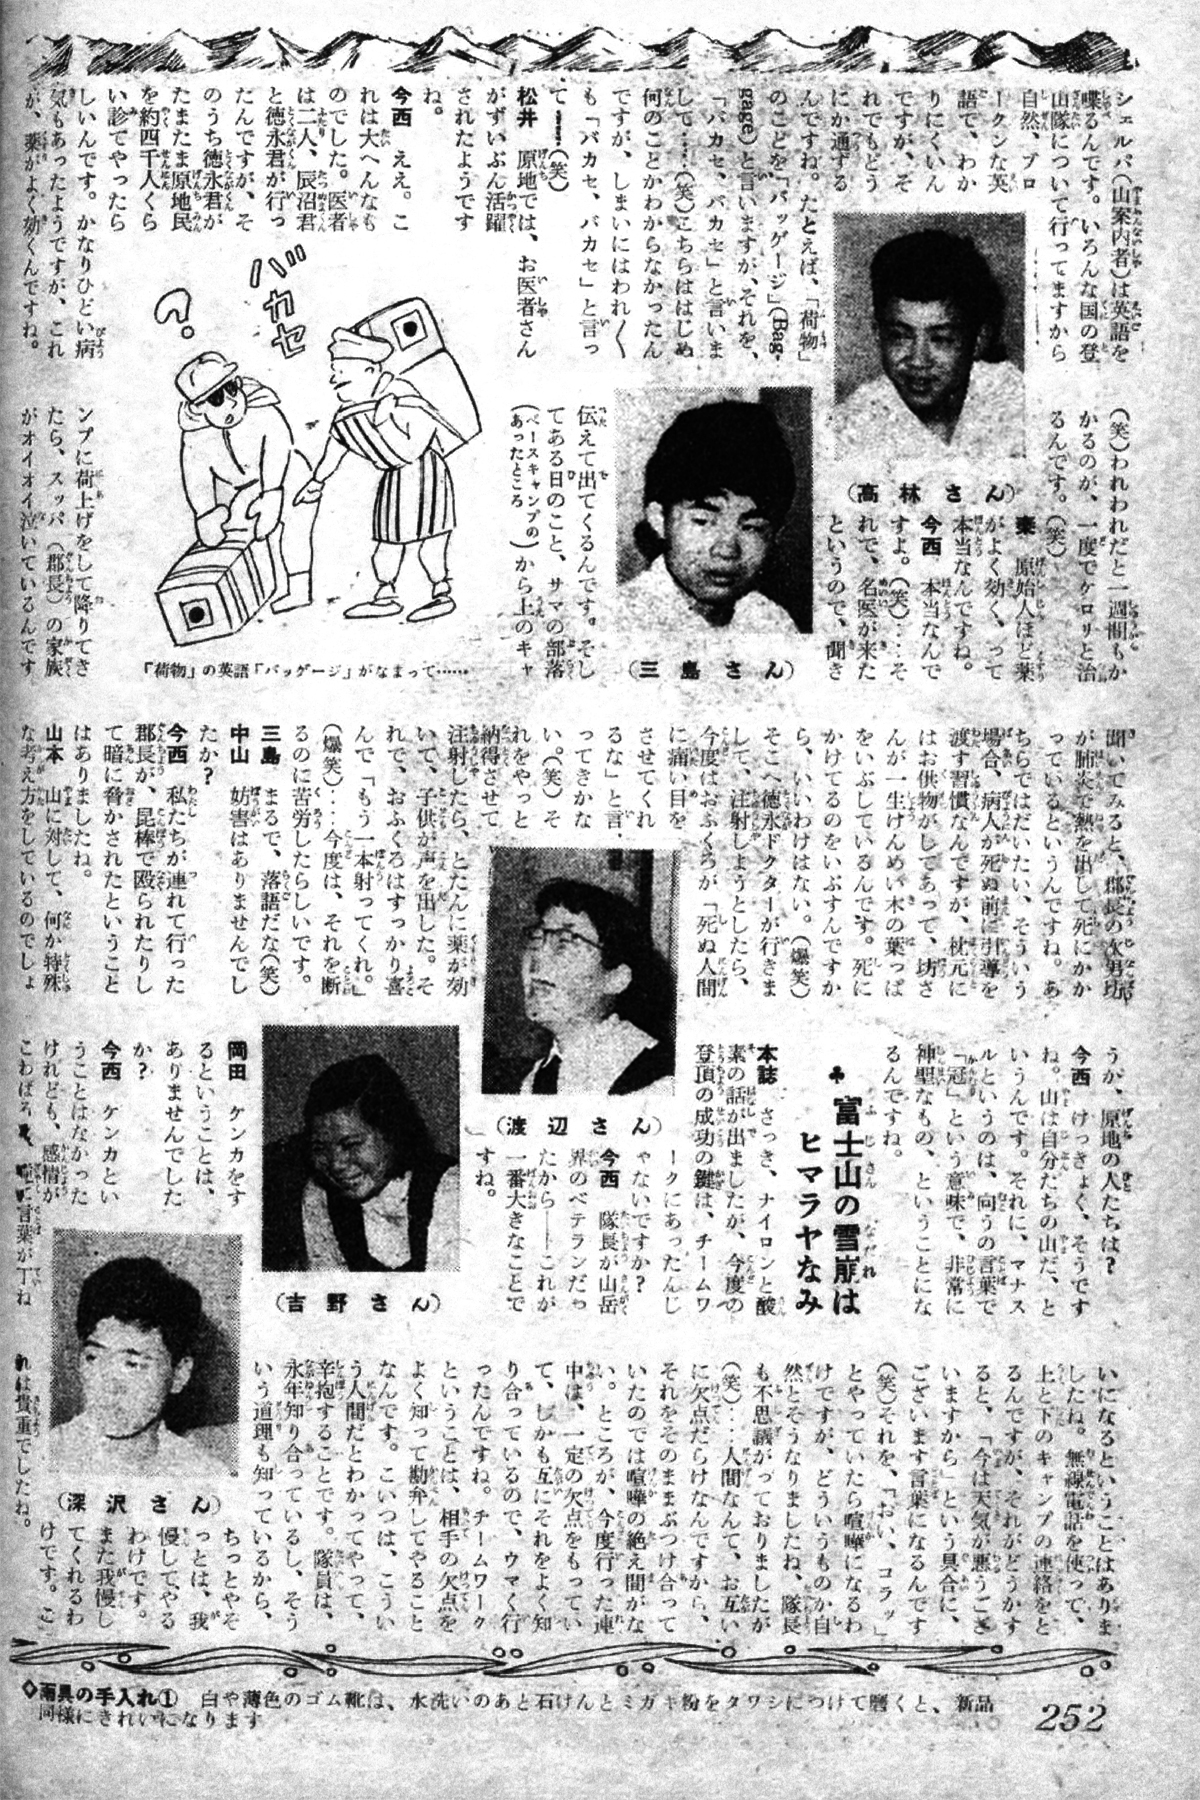 シェルパ(山案内者)は英語を
喋るんです。いろんな国の登
山隊について行ってますから
自然、ブロ
ークンな英
語で、わか
りにくいん
ですが、そ
れでもどう
にか通ずる
んですね。たとえば、「荷物」
のことを「バッゲージ」(Bag-
gage)と言いますが、それを、
「バカセ、バカセ」と言いま
して……(笑)こちらははじめ
何のことかわからなかったん
ですが、しまいにはわれ〱
も「バカセ、バカセ」と言っ
て……(笑)
松井 原地では、お医者さん
がずいぶん活躍
されたようです
ね。
今西 ええ。こ
れは大へんなも
のでした。医者
は二人、辰沼君
と徳永君が行っ
たんですが、そ
のうち徳永君が
たまたま原地民
を約四千人くら
い診てやったら
しいんです。かなりひどい病
気もあったようですが、これ
が、薬がよく効くんですね。
バカセ
?。
『荷物」の英語「バッゲージ」がなまって……
(高林さん)
(三島さん)
(笑)われわれだと一週間もか
かるのが、一度でケロリと治
るんです。(笑)
東 原始人ほど薬
がよく効く、って
本当なんですね。
今西 本当なんで
すよ。(笑)…そ
れで、名医が来た
というので、聞き
伝えて出てくるんです。そし
てある日のこと、サマの部落
(ベースキャンプの
あったところ)から上のキャ
ンプに荷上げをして降りてき
たら、スッパ(郡長)の家族
がオイオイ泣いているんです
聞いてみると、郡長の次男坊
が肺炎で熱を出して死にかか
っているというんですね。あ
ちらではだいたい、そういう
場合、病人が死ぬ前に引導を
渡す習慣なんですが、枕元に
はお供物がしてあって、坊さ
んが一生けんめい木の葉っぱ
をいぶしているんです。死に
かけてるのをいぶすんですか
ら、いいわけはない。(爆笑)
そこへ徳永ドクターが行きま
して、注射しようとしたら、
今度はおふくろが「死ぬ人間
に痛い目を
させてくれ
るな」と言
ってきかな
い。(笑)そ
れをやっと
納得させて
注射したら、とたんに薬が効
いて、子供が声を出した。そ
れで、おふくろはすっかり喜
んで「もう一本射ってくれ。」
(爆笑)…今度は、それを断
るのに苦労したらしいです。
三島 まるで、落語だな(笑)
中山 妨害はありませんでし
たか?
今西 私たちが連れて行った
郡長が、昆棒で殴られたりし
て暗に脅かされたということ
はありましたね。
山本 山に対して、何か特殊
な考え方をしているのでしょ
(渡辺さん)
(吉野さん)
うが、原地の人たちは?
今西 けっきょく、そうです
ね。山は自分たちの山だ、と
いうんです。それに、マナス
ルというのは、向うの言葉で
「冠」という意味で、非常に
神聖なもの、ということにな
るんですね。
♣富士山の雪崩は
ヒマラヤなみ
本誌 さっき、ナイロンと酸
素の話が出ましたが、今度の
登頂の成功の鍵は、チームワ
ークにあったんじ
ゃないですか?
今西 隊長が山岳
界のベテランだっ
たから――これが
一番大きなことで
すね。
岡田 ケンカをす
るということは、
ありませんでした
か?
今西 ケンカとい
うことはなかった
けれども、感情が
こわばる
言葉が丁ね
(深沢さん)
いになるということはありま
したね。無線電話を使って、
上と下のキャンプの連絡をと
るんですが、それがどうかす
ると、「今は天気が悪うござ
いますから」という具合に、
ございます言葉になるんです
(笑)それを、「おい、コラッ」
とやっていたら喧嘩になるわ
けですが、どういうものか自
然とそうなりましたね、隊長
も不思議がっておりましたが
(笑)…人間なんて、お互い
に欠点だらけなんですから、
それをそのままぶつけ合って
いたのでは喧嘩の絶え間がな
い。ところが、今度行った連
中は、一定の欠点をもってい
て、しかも互にそれをよく知
り合っているので、ウマく行
ったんですね。チームワーク
ということは、相手の欠点を
よく知って勘弁してやること
なんです。こいつは、こうい
う人間だとわかってやって、
辛抱することです。隊員は、
永年知り合っているし、そう
いう道理も知っているから、
ちっとやそ
っとは、我
慢してやる
わけです。
また我慢し
てくれるわ
けです。こ
れは貴重でしたね。
◇雨具の手入れ① 白や薄色のゴム靴は、水洗いのあと石けんとミガキ粉をタワシにつけて磨くと、新品
同様にきれいになります
252